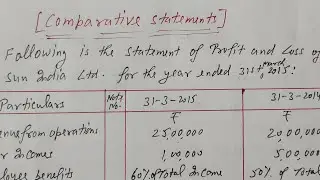 [Comparative Statements]
Following is the Statement of Profit and Loss of
Sun India Ltd. for the year ended 31st march, 2015:
Particulars Note No. 31-3-2015 31-3-2014
₹ ₹
from operations 25,00,000 20,00,000
Incomes 1,00,000 5,00,000
benefits 60% of Total Income 50% of Total